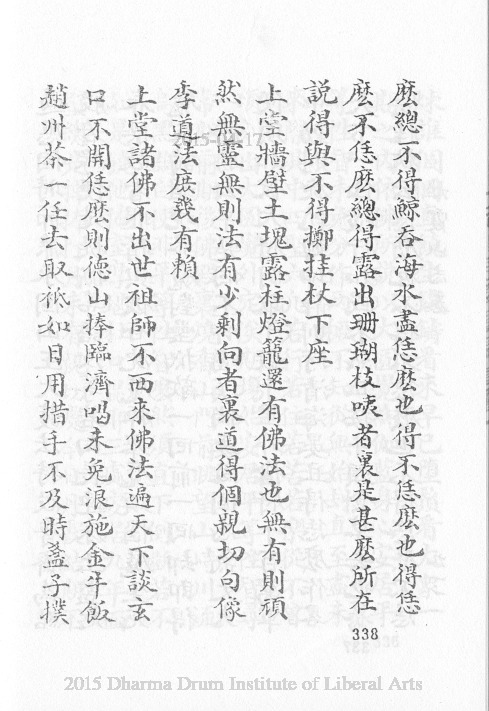 麽總不得鯨吞海水盡恁麽也得不恁麽也得恁
麽不恁麽總得露出珊瑚枝咦者裏是甚麽所在
説得與不得擲拄杖下座
上堂牆壁土塊露柱燈籠還有佛法也無有則頑
然無靈無則法有少剩向者裏道得個親切句像
季道法庶幾有賴
上堂諸佛不出世祖師不西來佛法遍天下談玄
口不開恁麽則德山捧臨濟喝未免浪施金牛飯
趙州茶一任去取祇如日用措手不及時盞子撲
338
2015 Dharma Drum Institute of Liberal Arts